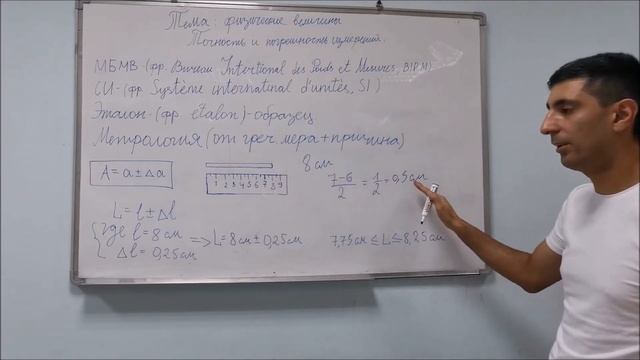 Тема: физические величины
Точность и погрешность измерений.
МБМВ-(фр. Bureau Intertional des Poids et Mesures, BIPM)
СИ-(фр. Système internatinal d'unités, SI)
Эталон-(фр. étalon)-образец
Метрология (от греч. мера+причина)
A = a ± Δa
1 2 3 4 5 6 7 8 9
8 см
7-6/2 = 1/2 = 0,5 см
L = l ± Δl
где l = 8 см
Δl = 0,25 см
=> L = 8 см ± 0,25 см
7,75 см ≤ L ≤ 8,25 см